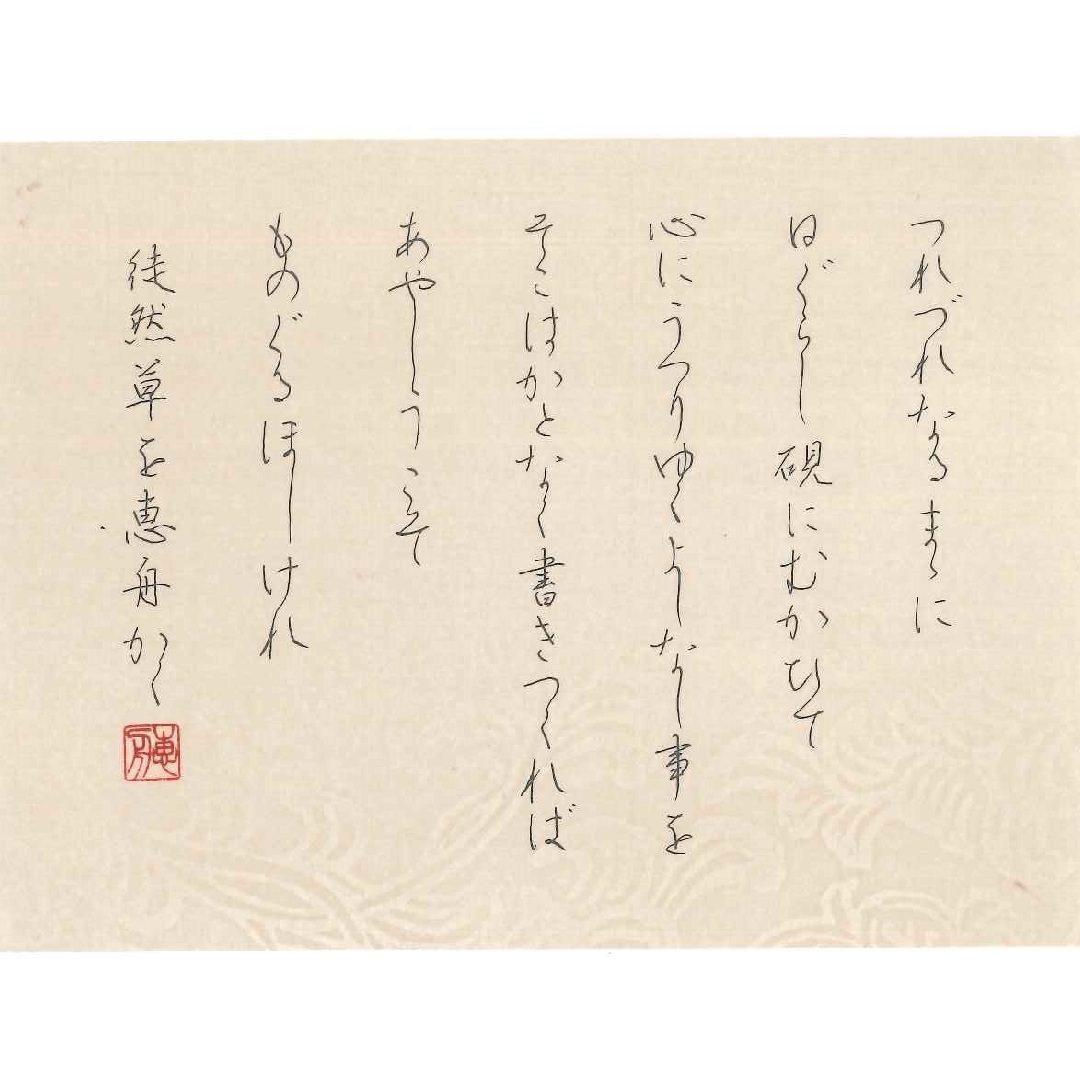 つれづれなるまゝに
日ぐらし硯にむかひて
心にうつりゆくよしなし事を
そこはかとなく書きつくれば
あやしうこそ
ものぐるほしけれ
徒然草を恵舟かく
恵舟